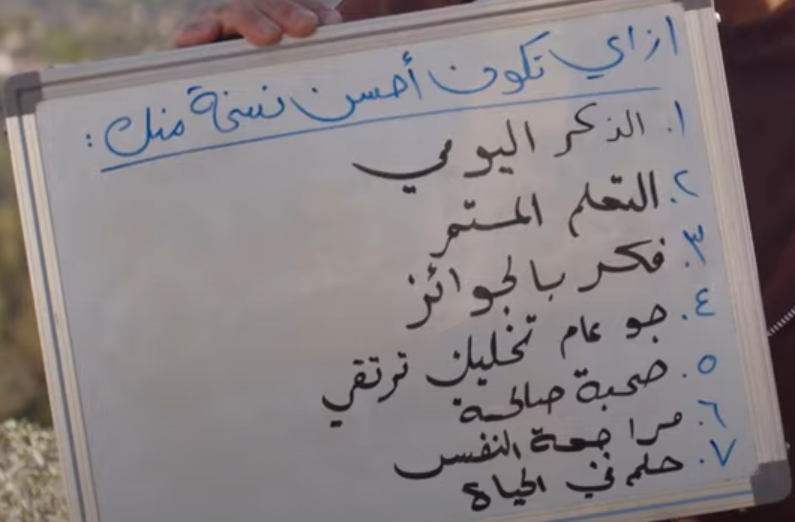 ازاي تكون أحسن نسخة منك :
١. الذكر اليومي
٢. التعلم المستمر
٣. فكر بالجوائز
٤. جو عام تخليك ترتقي
٥. صحبة صالحة
٦. مراجعة النفس
٧. حلم في الحياة